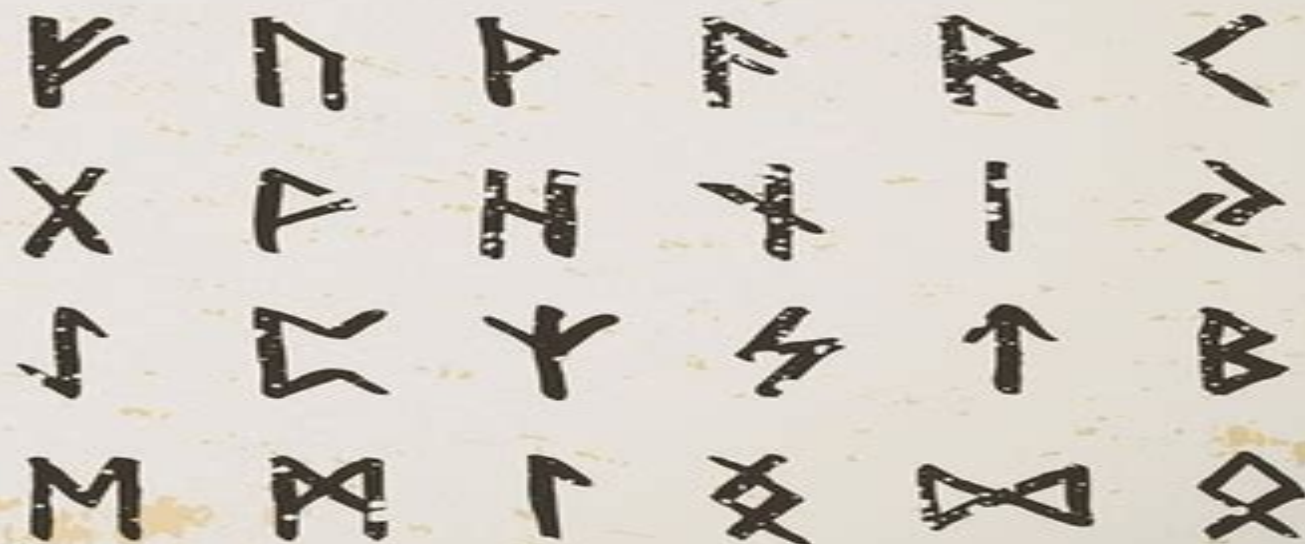 ᚠ ᚢ ᚦ ᚨ ᚱ ᚲ
ᚷ ᚹ ᚺ ᚾ ᛁ ᛃ
ᛇ ᛈ ᛉ ᛊ ᛏ ᛒ
ᛖ ᛗ ᛚ ᛜ ᛞ ᛟ